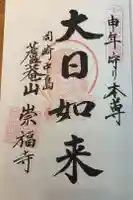 申年守り本尊
大日如来
岡崎中島
蘆菴山 崇福寺